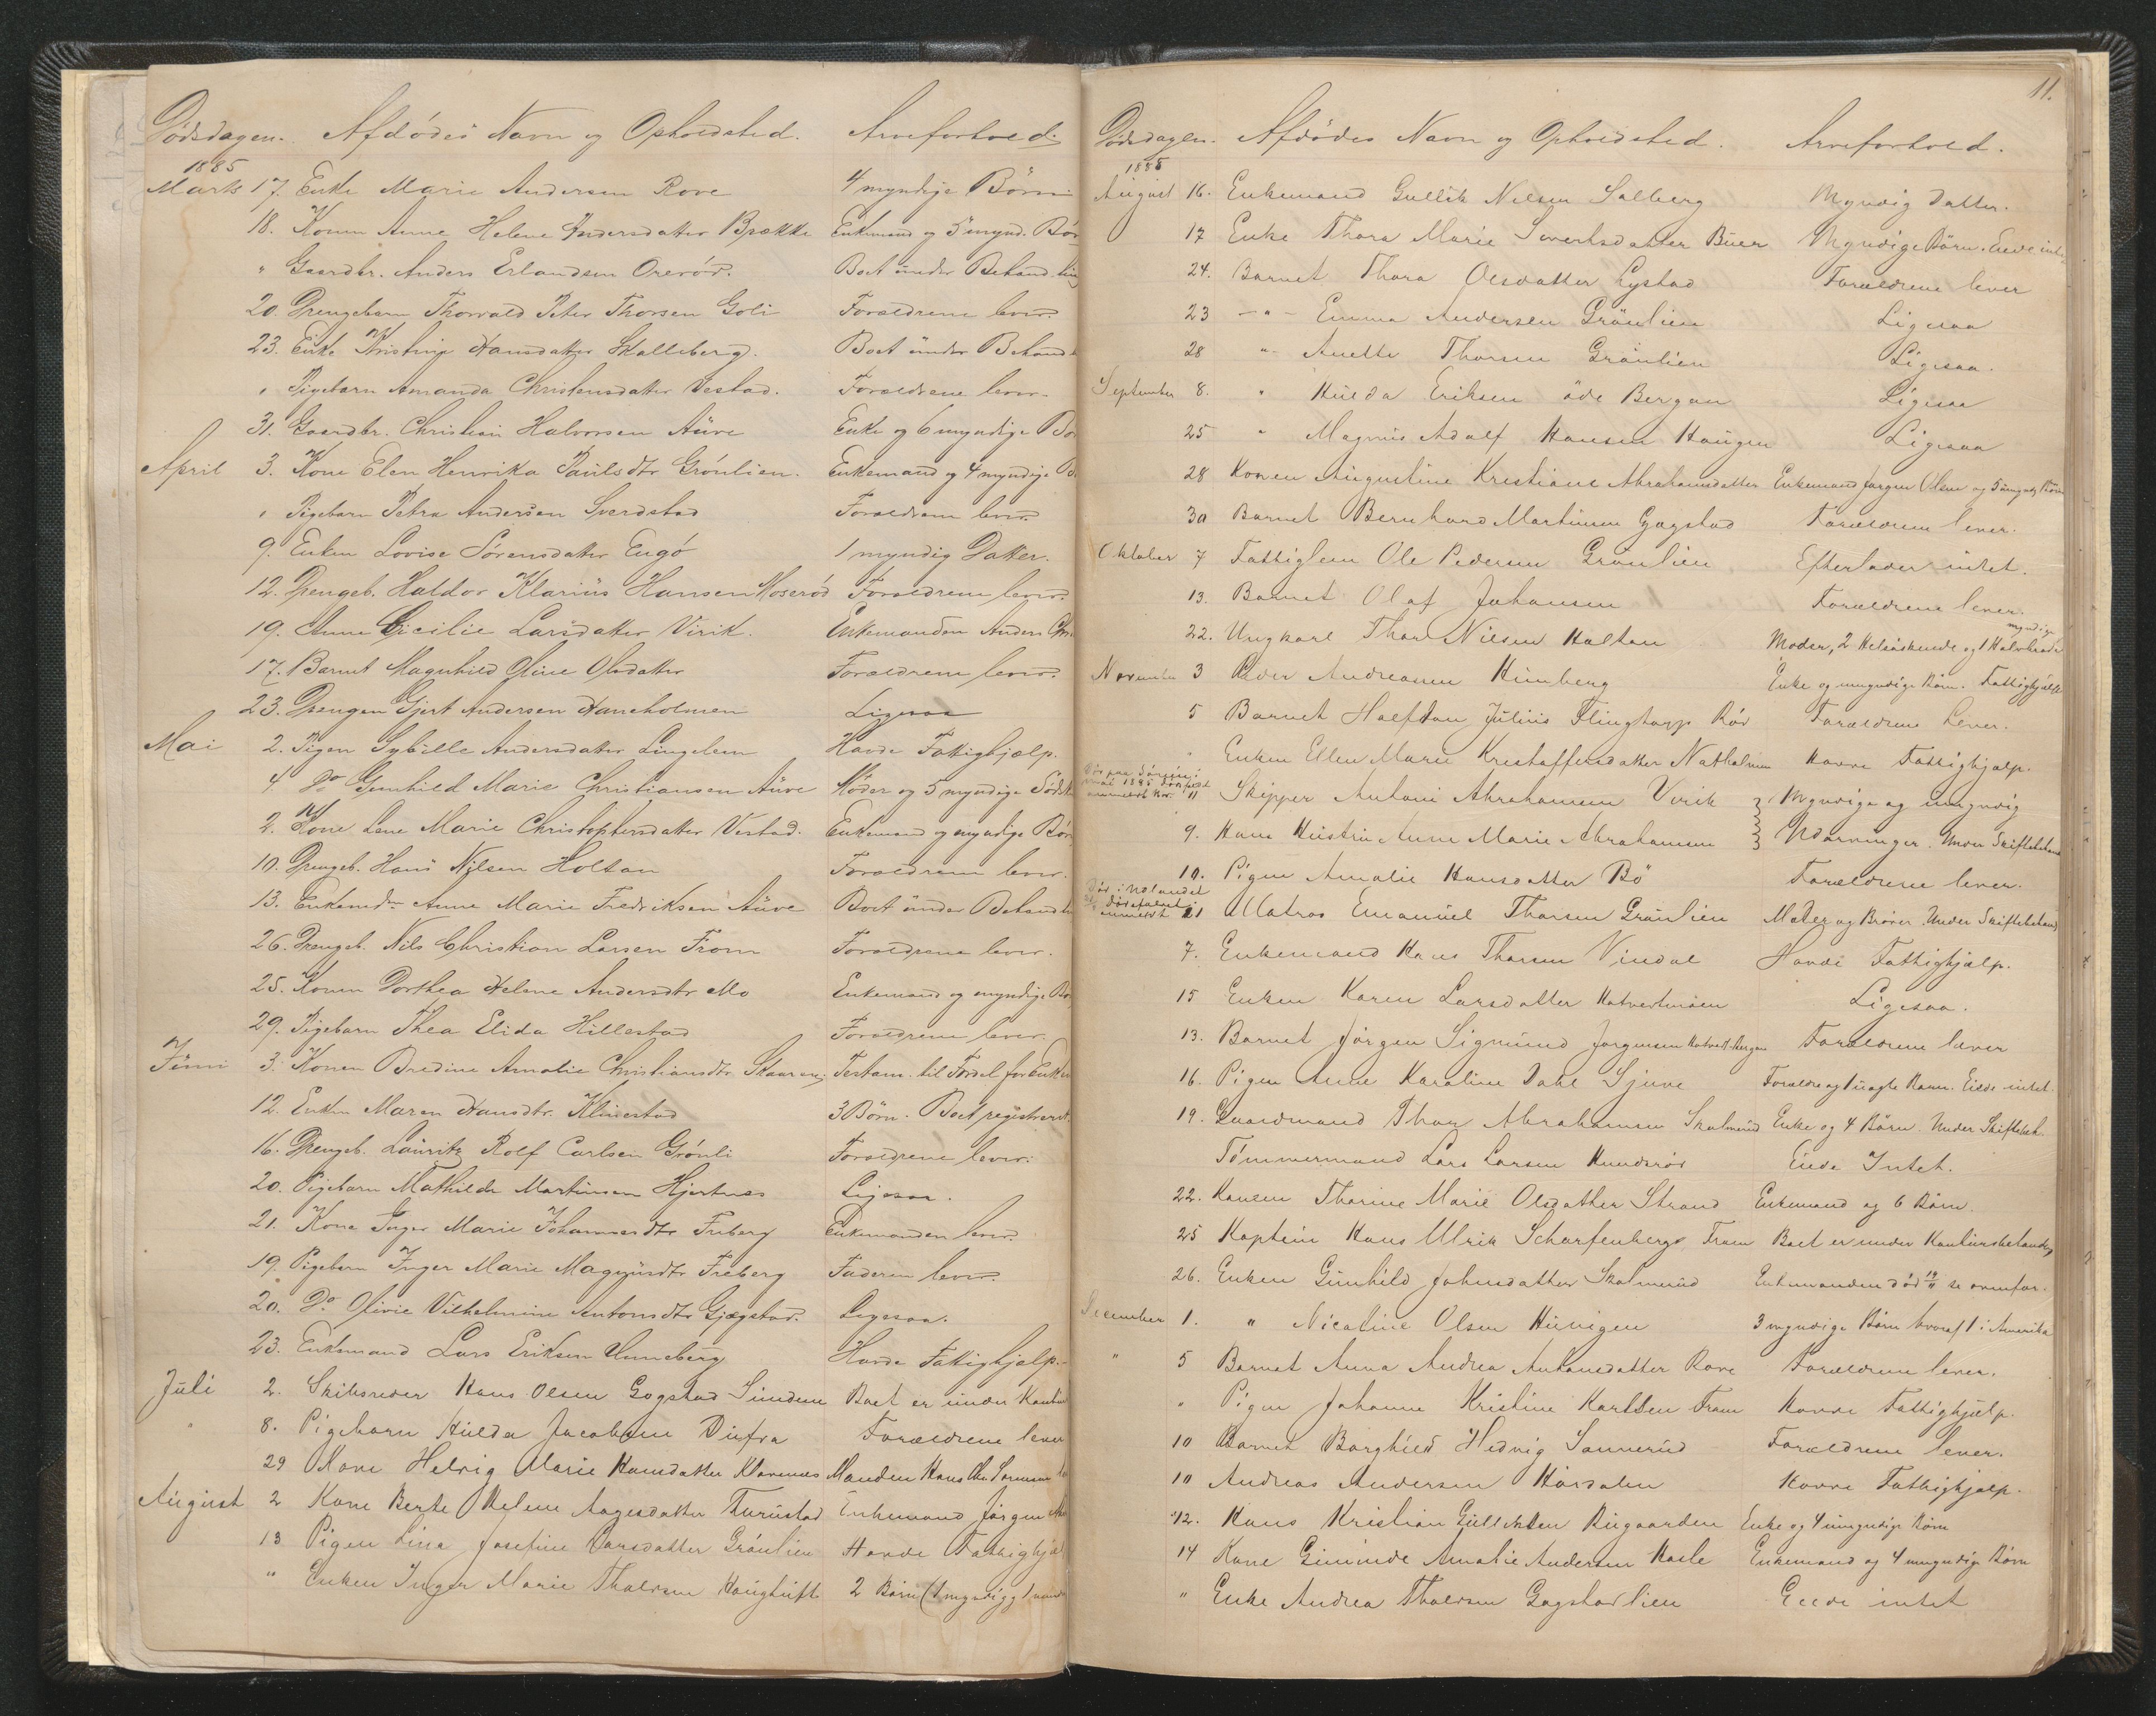 Dødsdagen. Afdødes Navn og Opholdsted. Arveforhold.
1885
Marts 17. Enke Marie Andersen Rove 4 myndige Børn.
18. Konen Anne Helene Andersdatter Brekke Enkemand og 5 mynd. Bør
" Gaardbr. Anders Erlandsen Orerød. Boet under Behandling
20. Drengebarn Thorvald Peter Thorsen Goli Forældrene lever.
23. Enke Kristine Hansdatter Skalleberg. Boet under Behand
" Pigebarn Amanda Christensdatter Vestad. Forældrene lever.
31. Gaardbr. Christian Halvorsen Auve Enke og 6 myndige Bø
April 3. Kone Elen Henrika Paulsdtr Grønlien. Enkemand og 4 myndige B
" Pigebarn Petra Andersen Sverdstad Forældrene lever.
9. Enken Lovise Sørensdatter Engø 1 myndig Datter.
12. Drengeb. Haldor Klarius Hansen Moserød Forældrene lever.
19. Anne Cicilie Larsdatter Virik. Enkemanden Anders Chr
17. Barnet Magnhild Oline Olsdatter Forældrene lever.
23. Drengen Gjert Andersen Haneholmen Ligesaa
Mai 2. Pigen Sybille Andersdatter Lingelem Havde Fattighjælp.
4 Do Gunhild Marie Christiansen Auve Moder og 5 myndige Sødsk
2. Kone Lene Marie Christophersdatter Vestad. Enkemand og myndige Bør
10. Drengeb. Hans Nilsen Holtan Forældrene lever.
13. Enkemd Anne Marie Fredriksen Auve Boet under Behand
26. Drengeb. Nils Christian Larsen Fron Forældrene lever.
25. Konen Dorthea Helene Andersdtr Mo Enkemand og myndige Bø
29. Pigebarn Thea Elida Hillestad Forældrene lever.
Juni 3. Konen Bredine Amalie Christiansdtr Testam. til Fordel for Enken
12. Enken Maren Hansdtr. Klinestad 3 Børn. Boet registreret.
16. Drengeb. Lauritz Rolf Carlsen Grønli Forældrene lever.
20. Pigebarn Mathilde Martinsen Hjertnes Ligesaa.
21. Kone Inger Marie Johannesdtr Friberg Enkemanden lever.
19. Pigebarn Inger Marie Magnusdtr Freberg Faderen lever.
20. Do Olivie Vilhelmine Antonsdtr Gjøgstad. Ligesaa.
23. Enkemand Lars Eriksen Unneberg Havde Fattighjælp.
Juli 2. Skibsreder Hans Olsen Gogstad Sundene Boet er under Konku
" 8. Pigebarn Hulda Jacobsen Forældrene lever
29 Kone Helvig Marie Hansdatter Klavenes Manden Hans Chr. Sørensen
August 2 Kone Berte Helene Aagesdatter Furustad Enkemand Jørgen
13 Pigen Lina Josefine Larsdatter Grønlien Havde Fattighjæl
" Enken Inger Marie Thorsen 2 Børn (1 myndig 1
11.
Dødsdagen. Afdødes Navn og Opholdsted. Arveforhold.
1885
August 16. Enkemand Gullik Nilsen Solberg Myndig Datter.
17 Enke Thora Marie Sivertsdatter Buer Myndige Børn. Eiede intet
24. Barnet Thora Olsdatter Lystad Forældrene lever
23 -"- Emma Andersen Grønlien Ligesaa
28 " Anette Thorsen Grønlien Ligesaa.
September 8. " Hulda Eriksen øde Bergan Ligesaa
25 " Magnus Adolf Hansen Haugen Ligesaa
28 Konen Augustine Kristiane Abrahamsdatter Enkemand Jørgen Olsen og 5 umynd. Børn
30 Barnet Bernhard Martinsen Gogstad Forældrene lever.
Oktober 7 Fattiglem Ole Pedersen Grønlien Efterlader intet.
13. Barnet Olaf Johansen Forældrene lever.
22. Ungkarl Thor Nilsen Holtan Moder, 2 Helsøskende og 1 Halvbroder myndige
November 3 Peder Andreasen Himberg Enke og umyndige Børn. Fattighjælp
5 Barnet Halfdan Julius Flingtorp Rød Forældrene Lever.
" Enken Ellen Marie Kristoffersdatter Natholmen Havde Fattighjælp.
11 Skipper Antoni Abrahamsen Virik Myndige og umyndig
9. Hans Hustru Anne Marie Abrahamsen Udarvinger. Under Skiftebehand
10. Pigen Amalie Hansdatter Bø Forældrene lever.
Død i Udlandet
21 Matros Emanuel Thorsen Grønlien Moder og Brøder. Under Skiftebehand
7. Enkemand Hans Thorsen Vindal Havde Fattighjælp.
15 Enken Karen Larsdatter Ligesaa.
13. Barnet Jørgen Sigmund Jørgensen Forældrene lever
16. Pigen Anne Karoline Dahl Sjuve Forældre og 1 uægte Barn. Eiede intet.
19. Gaardmand Thor Abrahamsen Skolmerød Enke og 4 Børn. Under Skiftebeh.
Tømmermand Lars Larsen Hunderød Eiede Intet.
22. Konen Thorine Marie Olsdatter Strand Enkemand og 6 Børn.
25 Kaptein Hans Ulrik Scharfenberg Fram Boet er under Konkursbehandlg
26. Enken Gunhild Johnsdatter Skolmerød Enkemanden død 19/11 se ovenfor.
December 1. " Nicoline Olsen Hunigen 3 myndige Børn hvoraf 1 i Amerika
" 5 Barnet Anna Andrea Antonsdatter Rove Forældrene lever.
" Pigen Johanne Kristine Karlsen Fram Havde Fattighjælp.
10 Barnet Borghild Hedvig Sannerud Forældrene lever.
10 Andreas Andersen Haasdalen Havde Fattighjælp.
12. Hans Kristian Gulliksen Rugaarden Enke og 4 umyndige Børn
14 Kone Amalie Andersen Hasle Enkemand og 4 umyndige Børn
" Enke Andrea Thorsen Gogstadlien Eiede intet